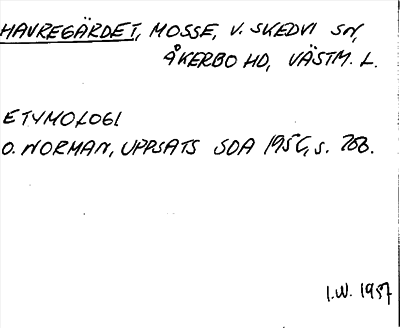 HAVREGÄRDET, MOSSE, V. SKEDVI SN,
ÅKERBO HD, VÄSTM. L.
ETYMOLOGI
O. NORMAN, UPPSATS SOA s.
I.W. 1957